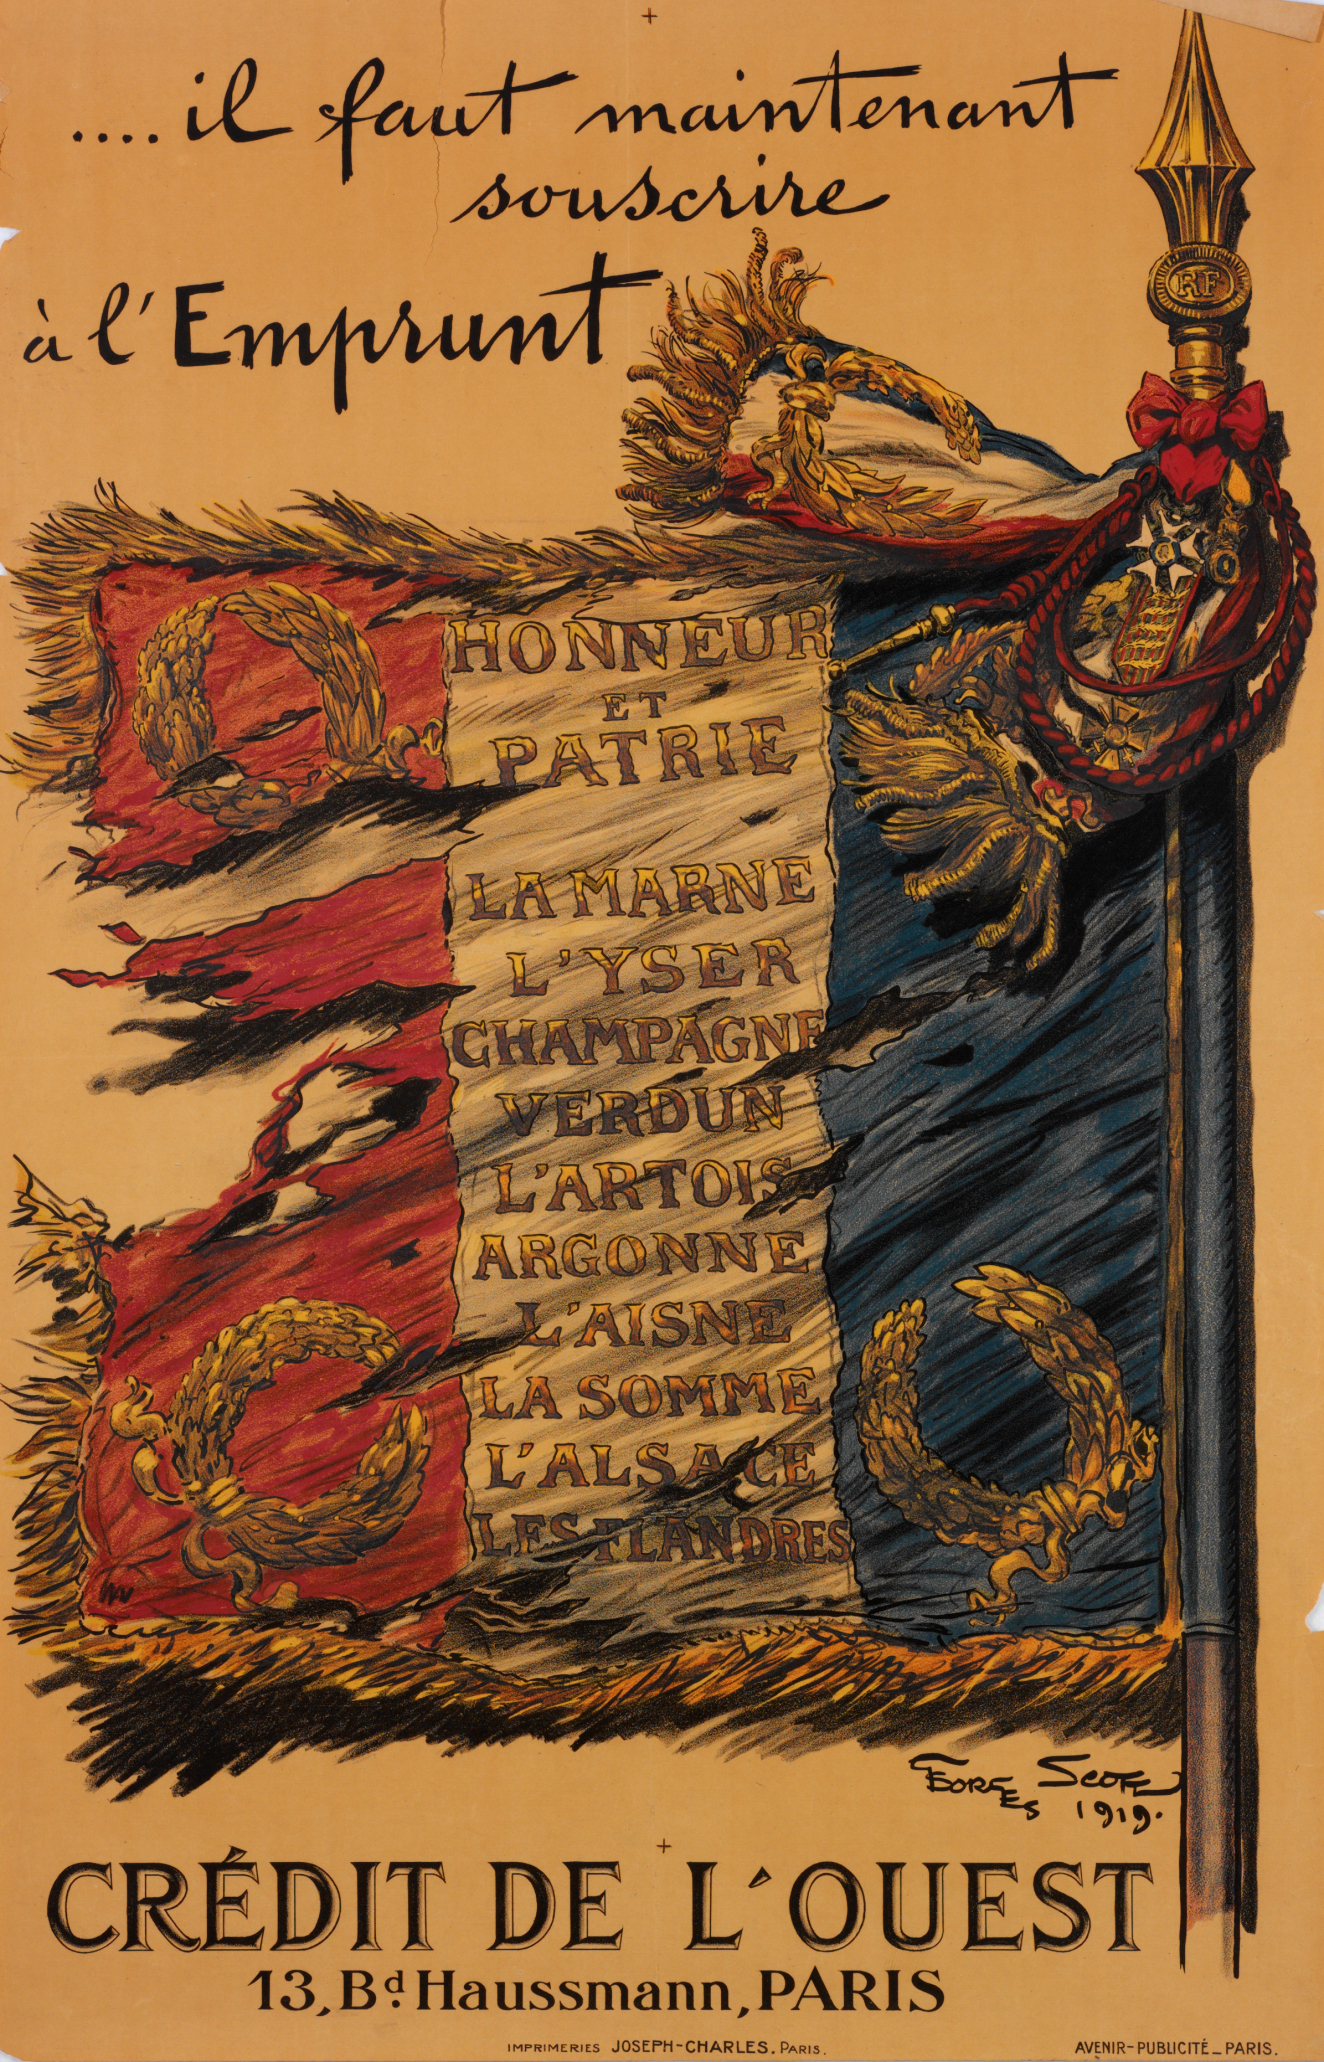 .... il faut maintenant
souscrire
à l'Emprunt
RF
HONNEUR
ET
PATRIE
LA MARNE
L'YSER
CHAMPAGNE
VERDUN
L'ARTOIS
ARGONNE
L'AISNE
LA SOMME
L'ALSACE
LES FLANDRES
GEORGES SCOTT
1919.
CRÉDIT DE L'OUEST
13, Bd. Haussmann, PARIS
IMPRIMERIES JOSEPH-CHARLES. PARIS.
AVENIR-PUBLICITÉ_PARIS.